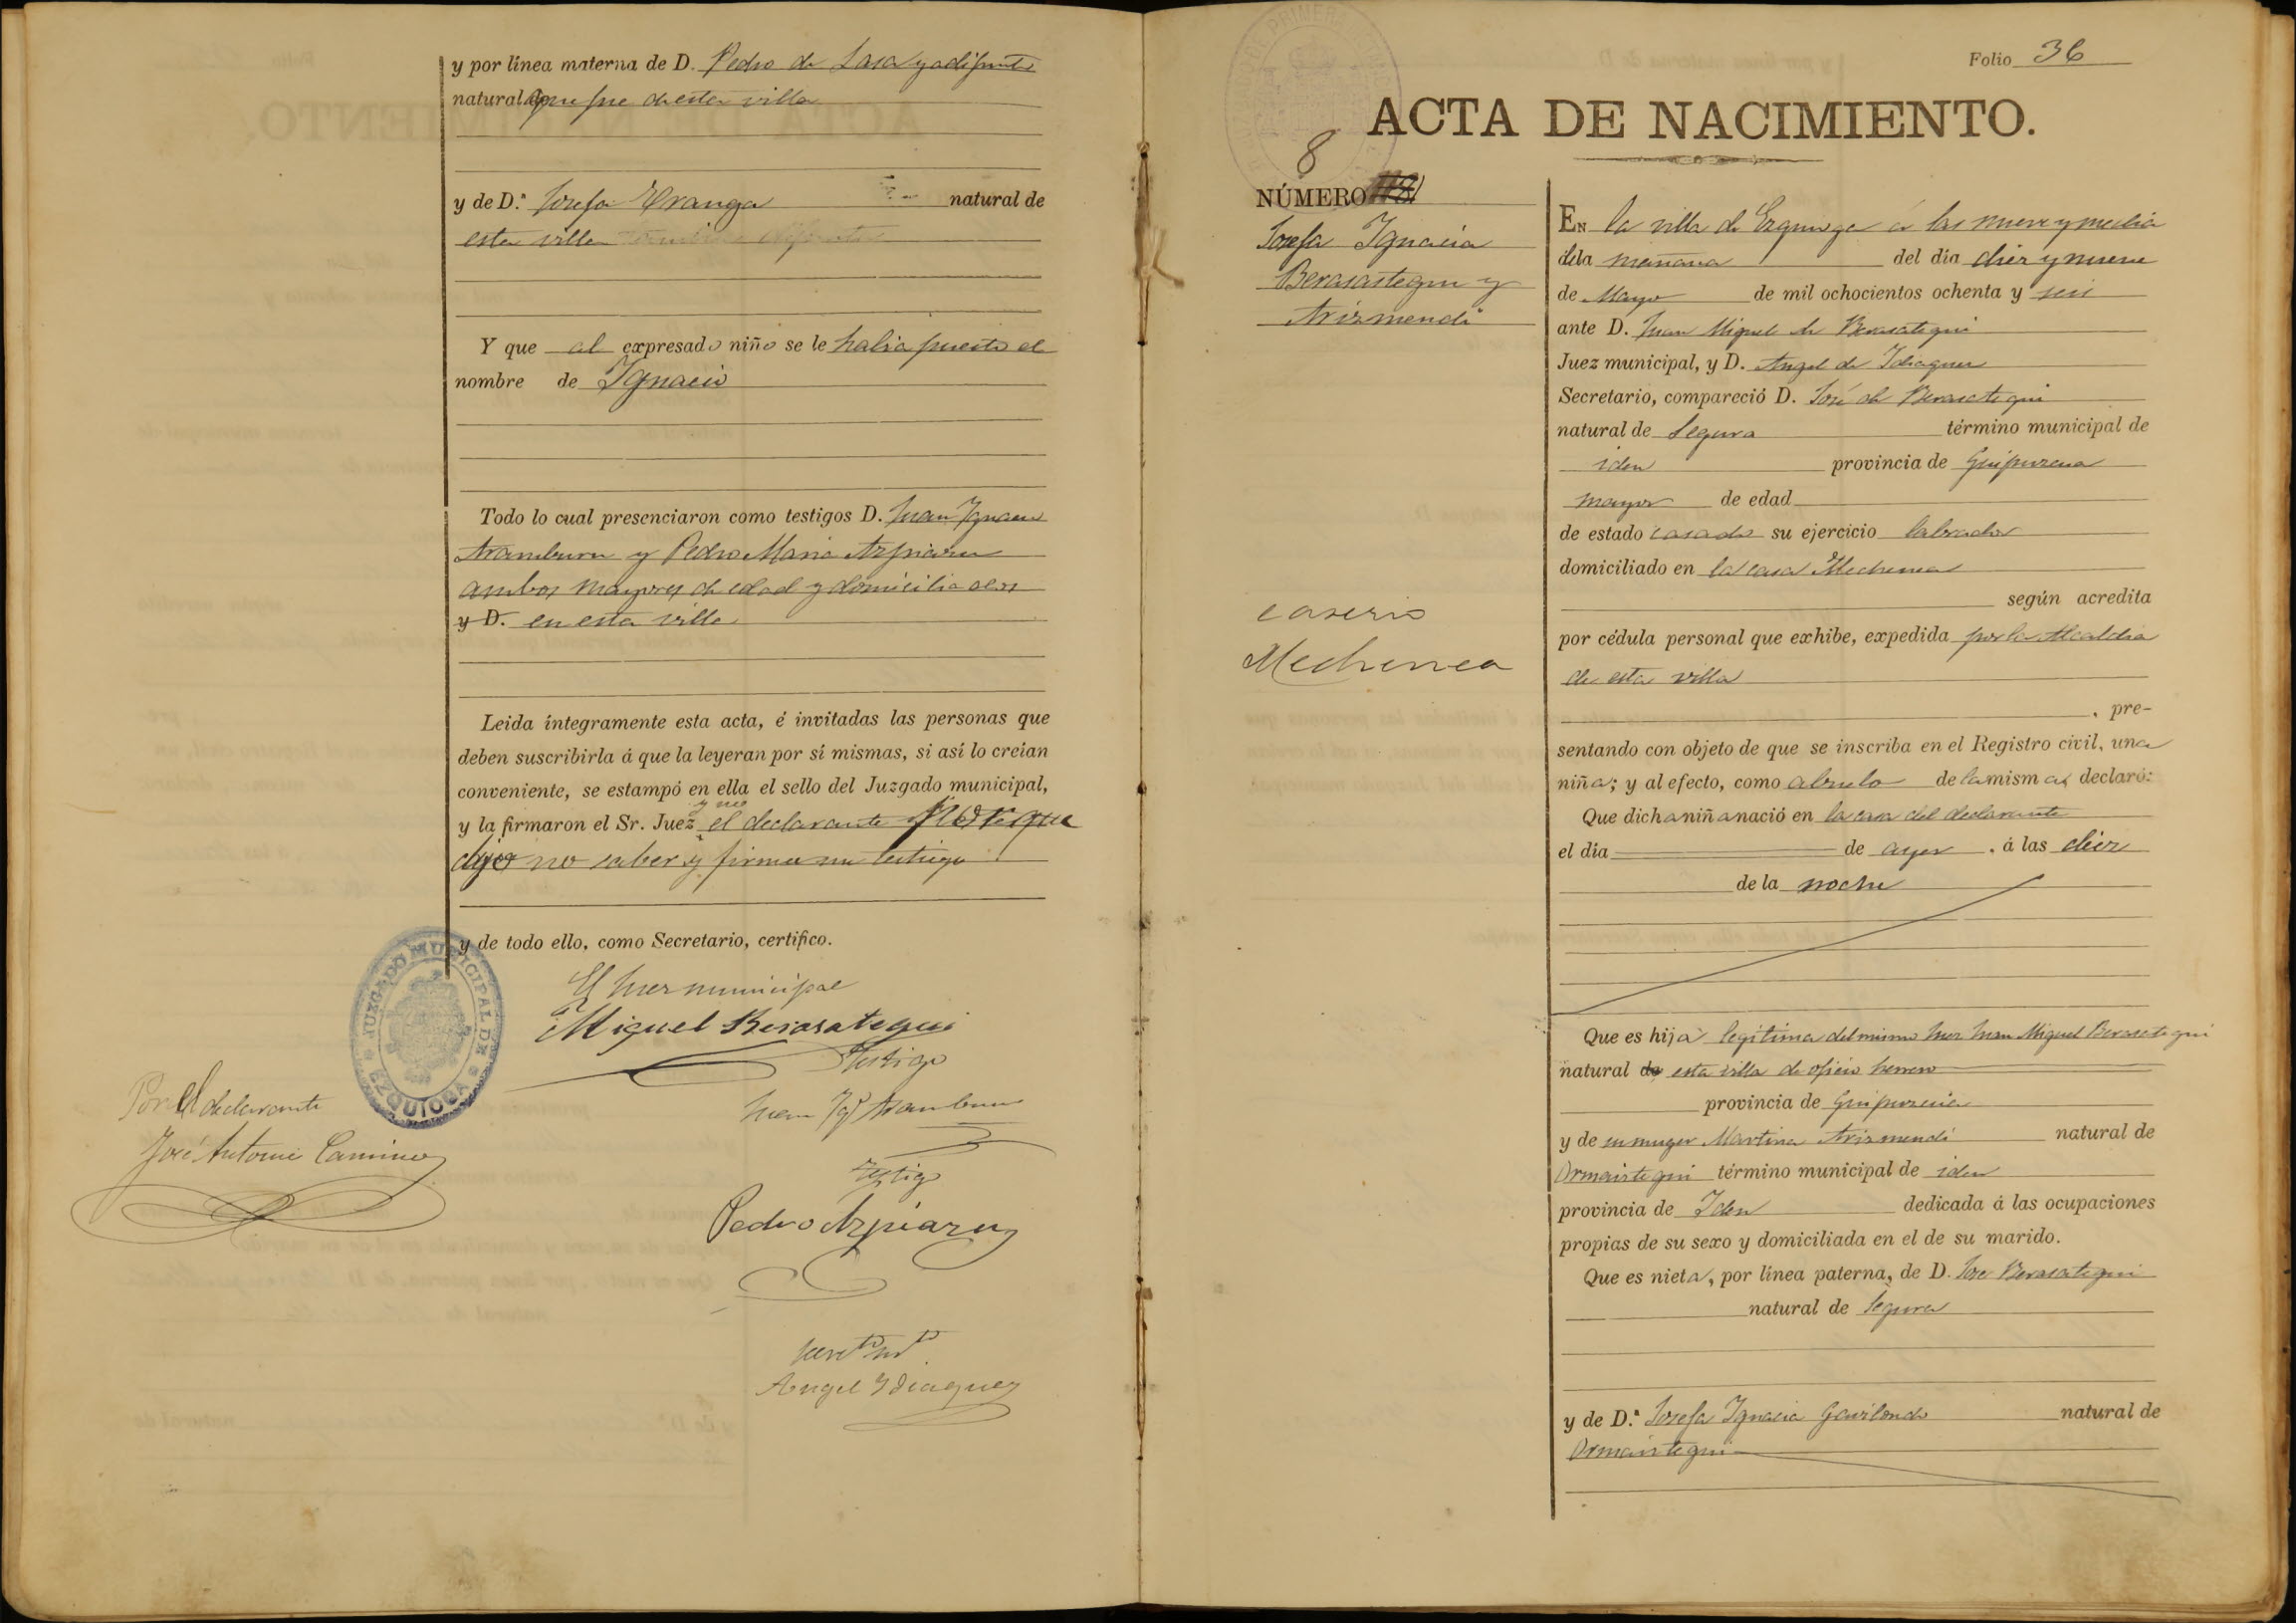 y por línea materna de D. Pedro de Lasa ya difunto
natural que fue de esta villa
y de D.ª Josefa Eranga natural de
esta villa
Y que al expresado niño se le habia puesto el
nombre de Ignacio
Todo lo cual presenciaron como testigos D. Juan Ignacio
Aramburu y Pedro Maria Azpiazu
ambos mayores de edad y domiciliados
y D. en esta villa
Leida íntegramente esta acta, é invitadas las personas que
deben suscribirla á que la leyeran por sí mismas, si así lo creían
conveniente, se estampó en ella el sello del Juzgado municipal,
y la firmaron el Sr. Juez y no el declarante porque
dijo no saber y firma un testigo
y de todo ello, como Secretario, certifico.
JUZGADO MUNICIPAL DE EZQUIOGA
El Juez municipal
Miguel Berasategui
Testigo
Juan Ig.º Aramburu
Por el declarante
José Antonio Camino
Testigo
Pedro Azpiazu
Angel Ydiaquez
Folio 36
ACTA DE NACIMIENTO.
8
NÚMERO
Josefa Ignacia
Berasastegui y
Arizmendi
caserio
Mechenea
EN la villa de Ezquioga á las nueve y media
de la mañana del dia diez y nueve
de Mayo de mil ochocientos ochenta y seis
ante D. Juan Miguel de Berasategui
Juez municipal, y D. Angel de Idiaquez
Secretario, compareció D. José de Berasategui
natural de Segura término municipal de
iden provincia de Guipuzcua
mayor de edad
de estado casado su ejercicio labrador
domiciliado en la casa Mechenea
según acredita
por cédula personal que exhibe, expedida por la Alcaldia
de esta villa
, pre-
sentando con objeto de que se inscriba en el Registro civil, una
niña; y al efecto, como abuelo de la misma, declaró:
Que dicha niña nació en la casa del declarante
el dia de ayer, á las diez
de la noche
Que es hija legitima del mismo Juez Juan Miguel Berasategui
natural de esta villa de oficio herrero
provincia de Guipuzcua
y de su muger Martina Arizmendi natural de
Ormaiztegui término municipal de iden
provincia de Iden dedicada á las ocupaciones
propias de su sexo y domiciliada en el de su marido.
Que es nieta, por línea paterna, de D. Jose Berasategui
natural de Segura
y de D.ª Josefa Ignacia Gavilondo natural de
Ormaiztegui